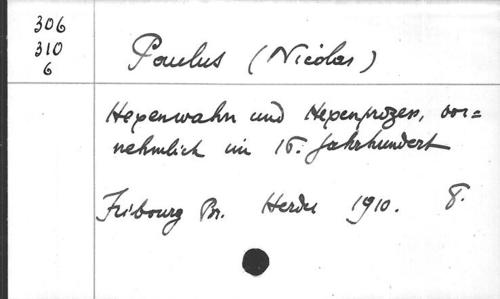 306
310
6
Paulus (Nicolas)
Hexenwahn und Hexenprozess, vor=
nehmlich im 16. Jahrhundert
Fribourg Br. Herder 1910. 8.